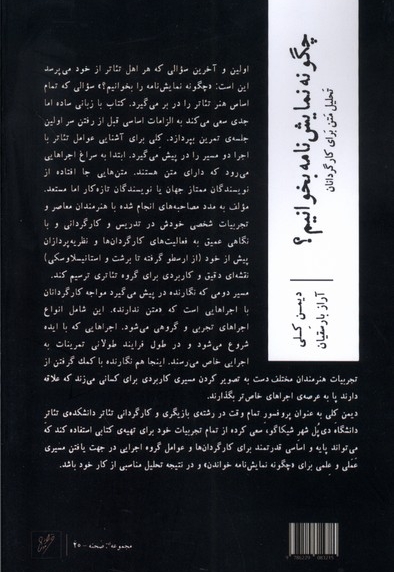 چگونه نمایش‌نامه بخوانیم؟
تحلیل متن برای کارگردانان
دیمن کلی
آراز بارسقیان
اولین و آخرین سؤالی که هر اهل تئاتر از خود می‌پرسد
این است: «چگونه نمایش‌نامه را بخوانیم؟» سؤالی که تمام
اساس هنر تئاتر را در بر می‌گیرد. کتاب با زبانی ساده اما
جدی سعی می‌کند به الزامات اساسی قبل از رفتن سر اولین
جلسه‌ی تمرین بپردازد. کلی برای آشنایی عوامل تئاتر با
اجرا دو مسیر را در پیش می‌گیرد. ابتدا به سراغ اجراهایی
می‌رود که دارای متن هستند. متن‌هایی جا افتاده از
نویسندگان ممتاز جهان یا نویسندگان تازه‌کار اما مستعد.
مؤلف به مدد مصاحبه‌های انجام شده با هنرمندان معاصر و
تجربیات شخصی خودش در تدریس و کارگردانی و با
نگاهی عمیق به فعالیت‌های کارگردان‌ها و نظریه‌پردازان
پیش از خود (از ارسطو گرفته تا برشت و استانیسلاوسکی)
نقشه‌ی دقیق و کاربردی برای گروه تئاتری ترسیم کند.
مسیر دومی که نگارنده در پیش می‌گیرد مواجه کارگردانان
با اجراهایی است که «متن ندارند». این شامل انواع
اجراهای تجربی و گروهی می‌شود. اجراهایی که با ایده
شروع می‌شود و در طول فرایند طولانی تمرینات به
اجرایی خاص می‌رسند. اینجا هم نگارنده با کمک گرفتن از
تجربیات هنرمندان مختلف دست به تصویر کردن مسیری کاربردی برای کسانی می‌زند که علاقه
دارند پا به عرصه‌ی اجراهای خاص‌تر بگذارند.
دیمن کلی به عنوان پروفسور تمام وقت در رشته‌ی بازیگری و کارگردانی تئاتر دانشکده‌ی تئاتر
دانشگاه دی‌پُل شهر شیکاگو، سعی کرده از تمام تجربیات خود برای تهیه‌ی کتابی استفاده کند که
می‌تواند پایه و اساسی قدرتمند برای کارگردان‌ها و عوامل گروه اجرایی در جهت یافتن مسیری
عَمَلی و عِلمی برای «چگونه نمایش‌نامه خواندن» و در نتیجه تحلیل مناسبی از کار خود باشد.
مجموعه‌ی صحنه - ۲۰